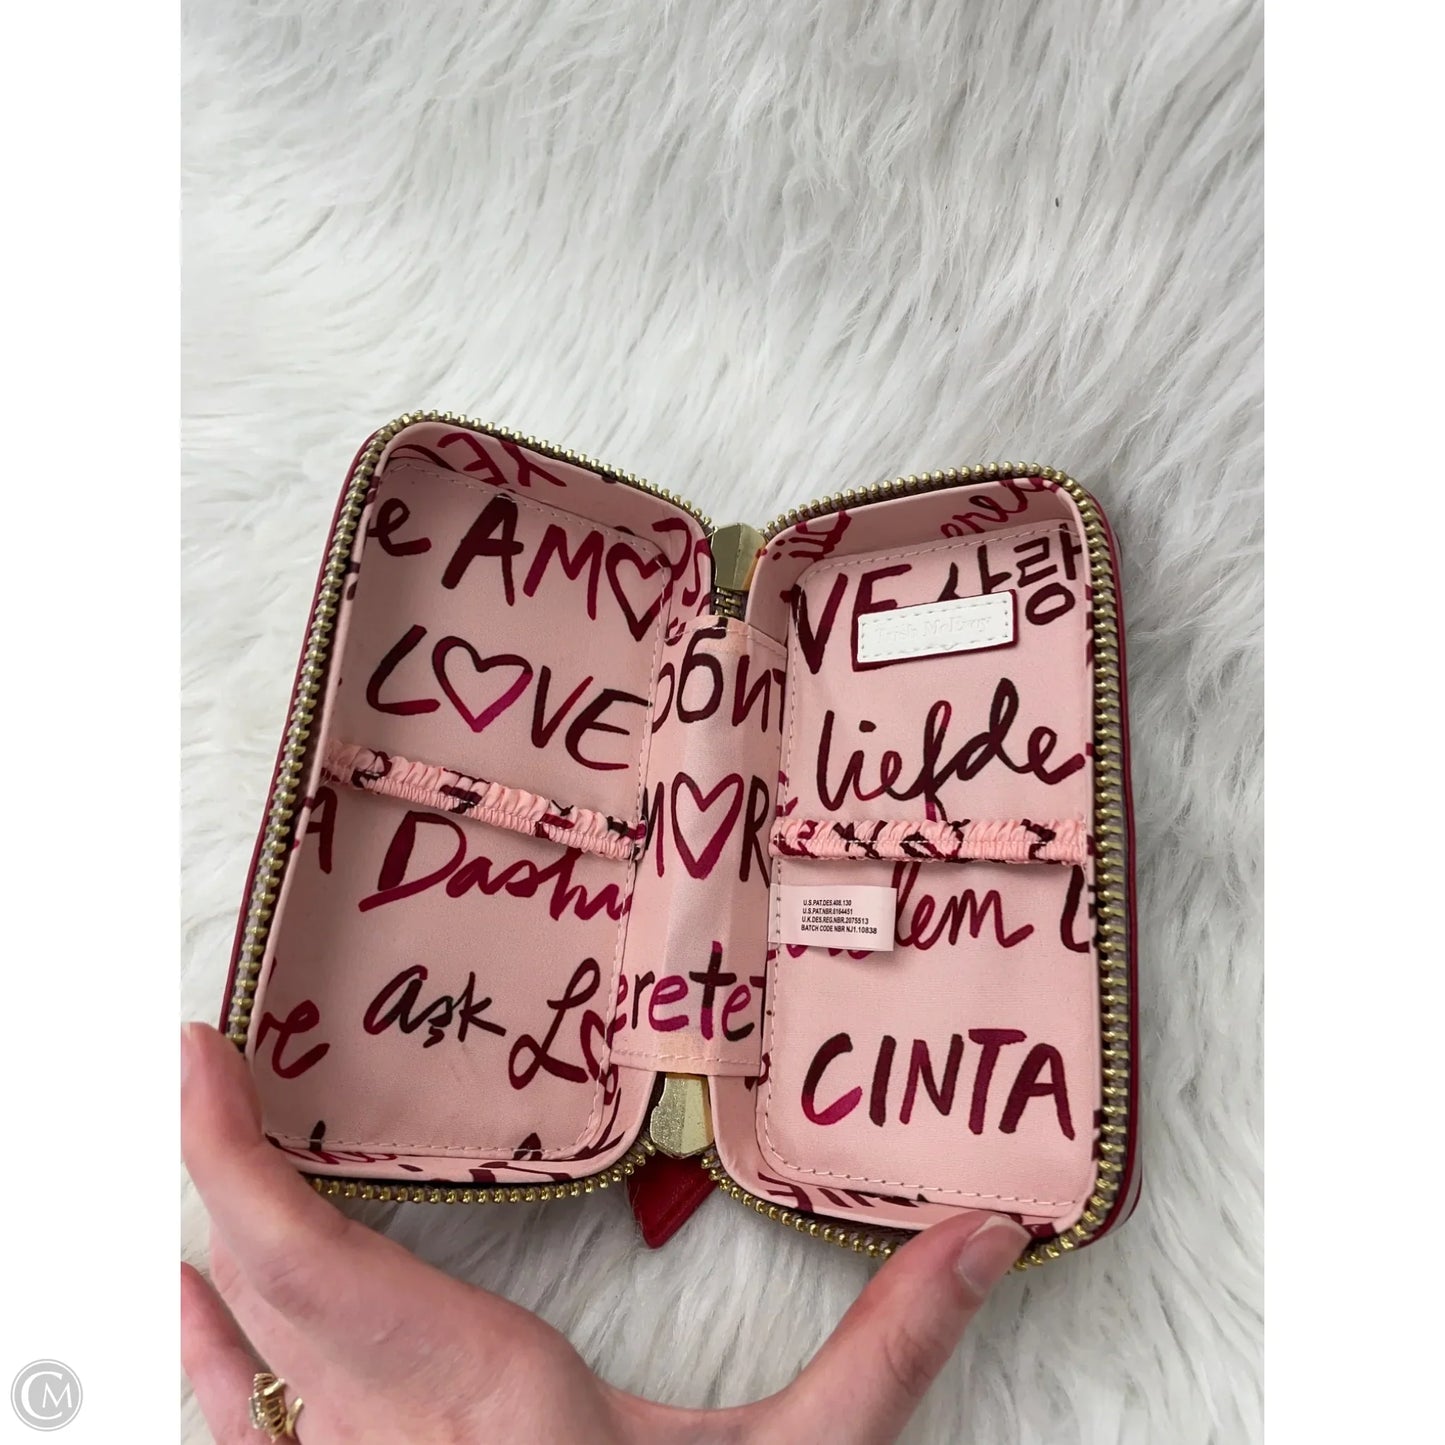 AMO
LOVE
Dashu
aşk
бит
MOR
erete
VE 사랑
Trish McEvoy
liefde
U.S.PAT.DES.408,130
U.S.PAT.NBR.6164451
U.K.DES.REG.NBR.2075513
BATCH CODE NBR NJ1.10838
lem
CINTA
CM